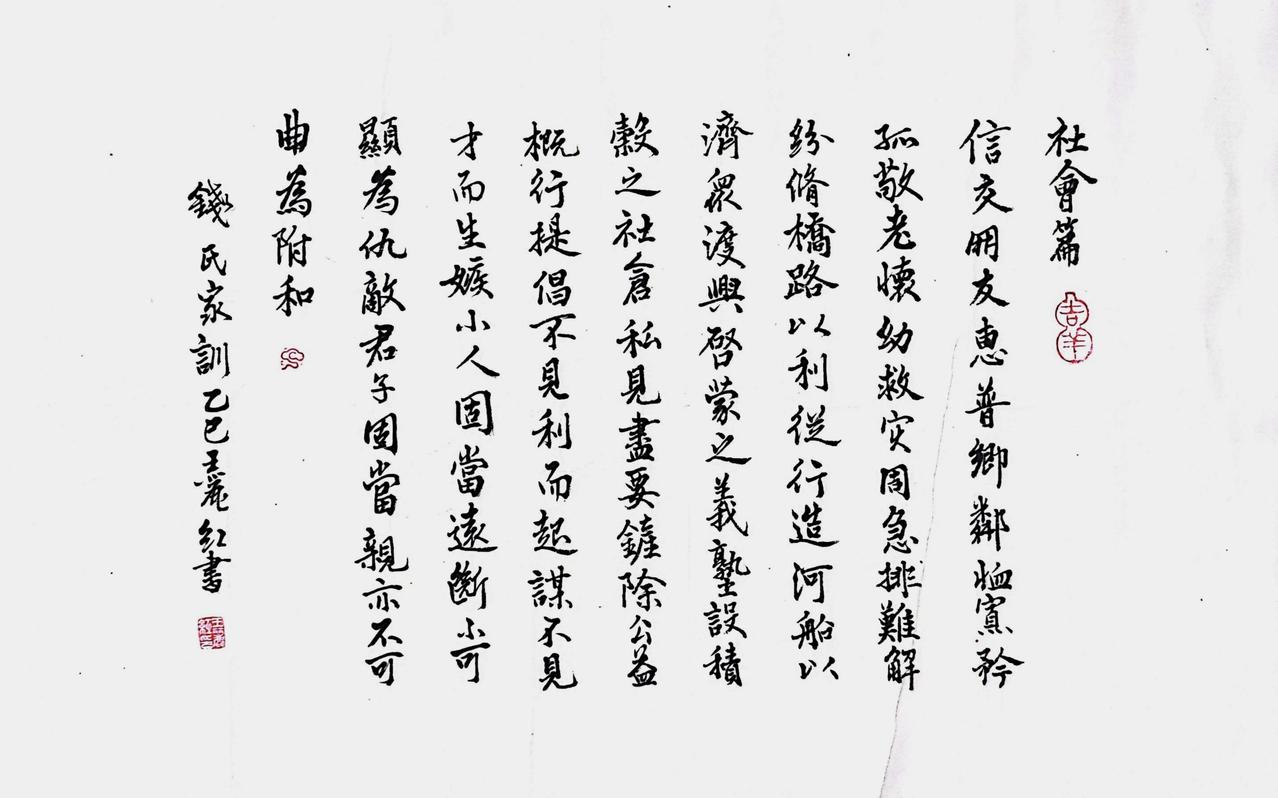 社會篇
吉羊
信交朋友惠普鄉鄰恤寡矜
孤敬老懷幼救災周急排難解
紛脩橋路以利從行造河船以
濟眾渡興啓蒙之義塾設積
穀之社倉私見盡要鏟除公益
概行提倡不見利而起謀不見
才而生嫉小人固當遠斷不可
顯為仇敵君子固當親亦不可
曲為附和
錢氏家訓乙巳王麗紅書